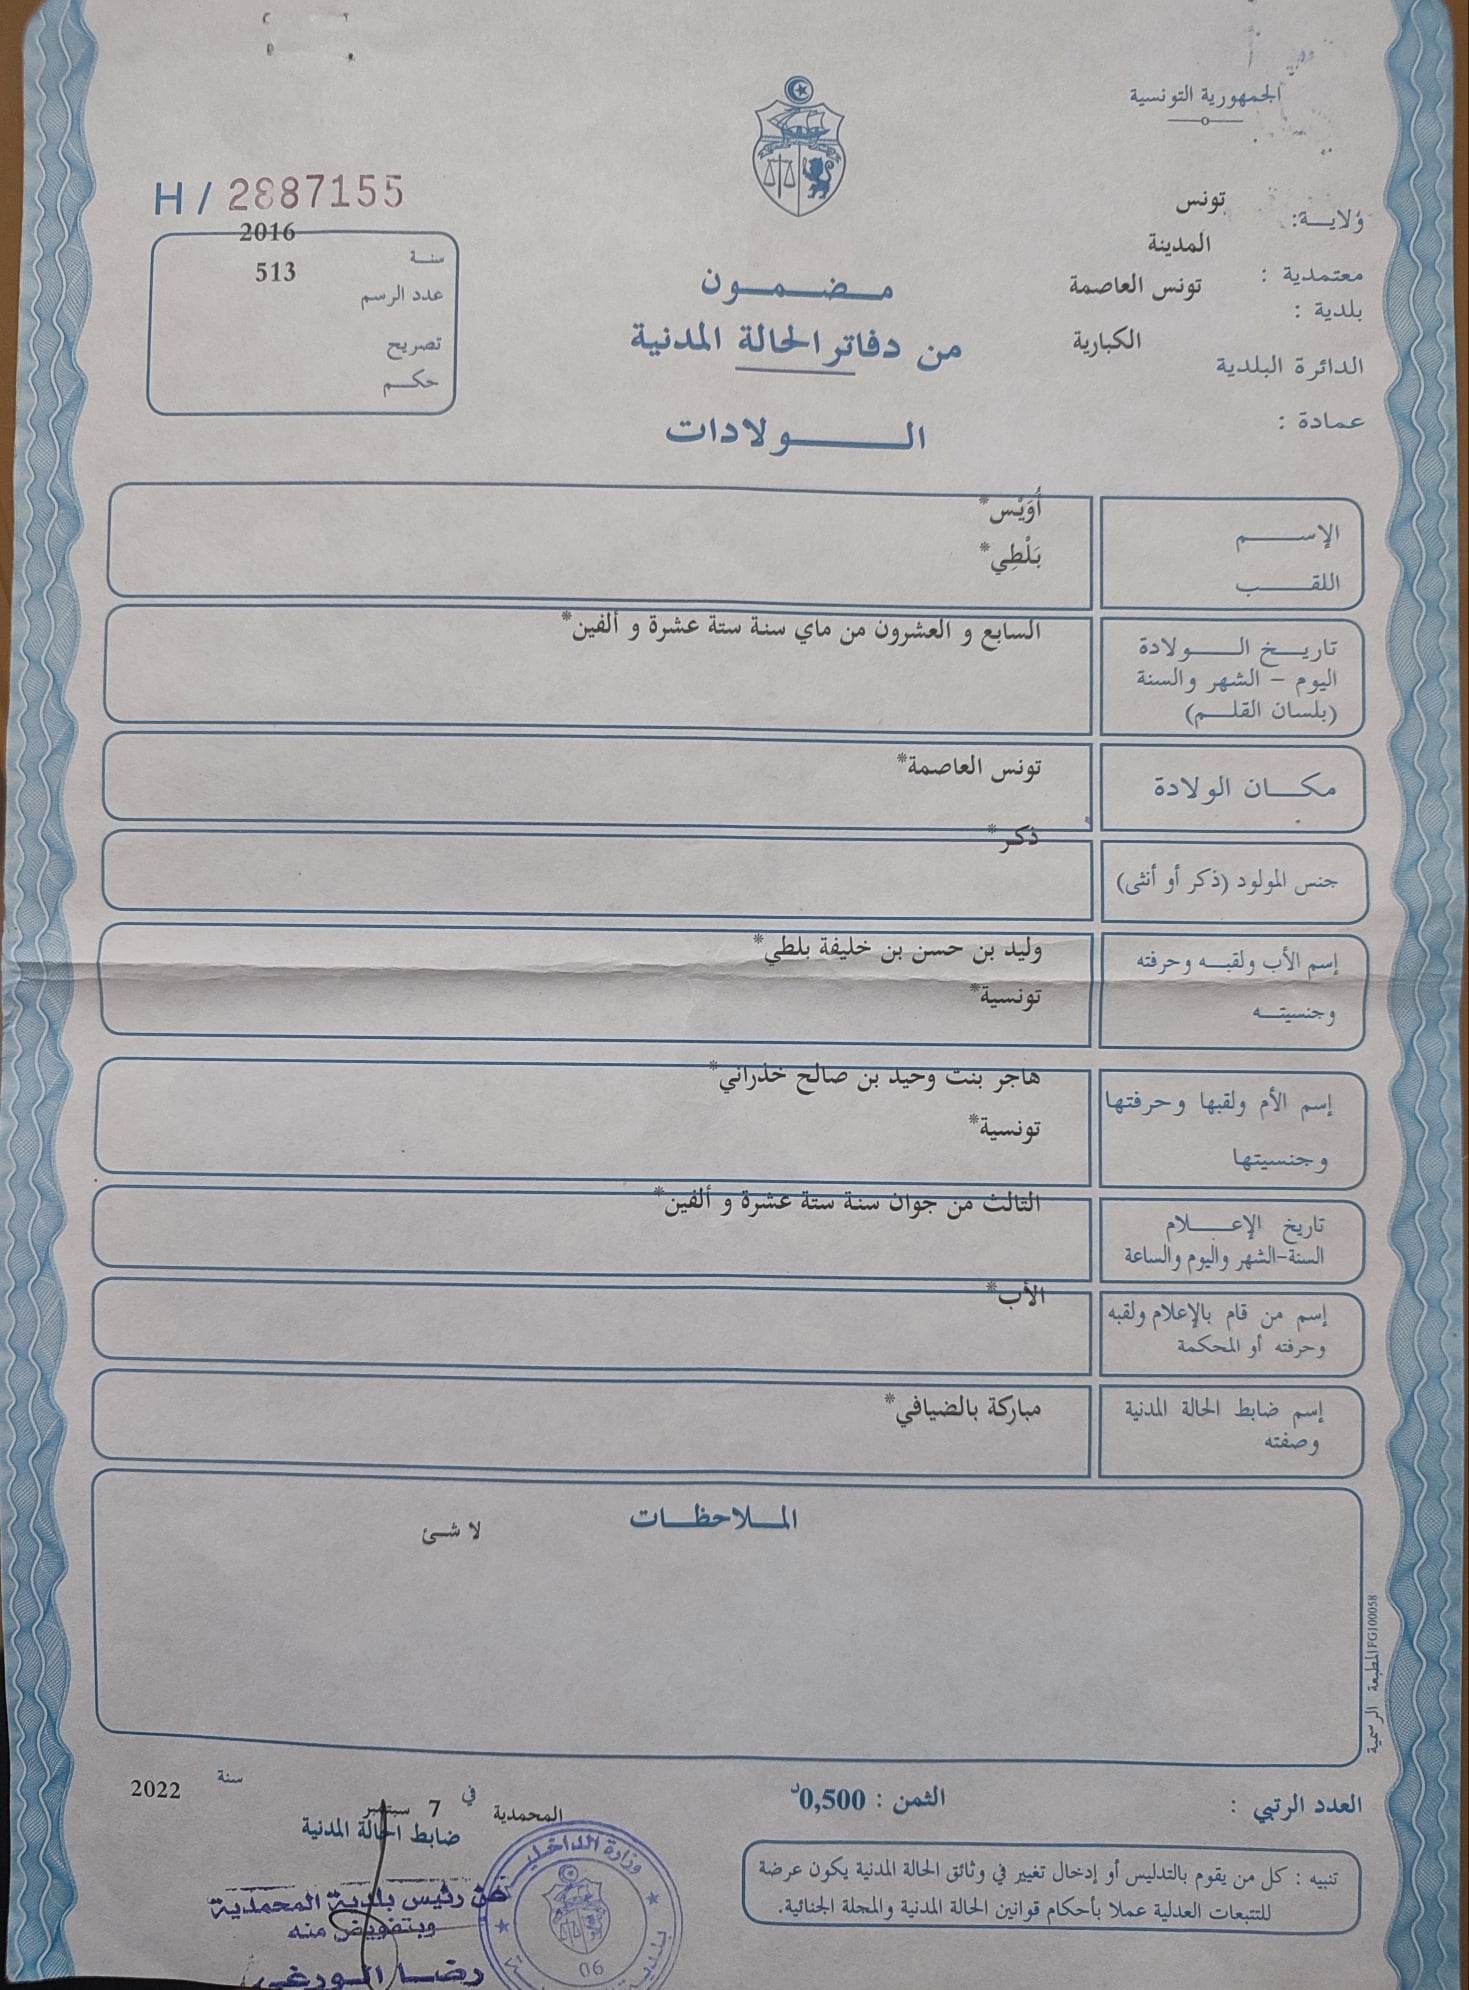 الجمهورية التونسية
ولاية: تونس
معتمدية : المدينة
بلدية : تونس العاصمة
الدائرة البلدية الكبارية
عمادة :
H / 2887155
سنة 2016
عدد الرسم 513
تصريح
حكم
مضمون
من دفاتر الحالة المدنية
الولادات
الإسم أُوَيْس*
اللقب بَلْطِي*
تاريخ الولادة
اليوم - الشهر والسنة
(بلسان القلم)
السابع و العشرون من ماي سنة ستة عشرة و ألفين*
مكان الولادة تونس العاصمة*
جنس المولود (ذكر أو أنثى) ذكر*
إسم الأب ولقبه وحرفته وليد بن حسن بن خليفة بلطي*
وجنسيته تونسية*
إسم الأم ولقبها وحرفتها هاجر بنت وحيد بن صالح خذراني*
وجنسيتها تونسية*
تاريخ الإعلام
السنة-الشهر واليوم والساعة
الثالث من جوان سنة ستة عشرة و ألفين*
إسم من قام بالإعلام ولقبه
وحرفته أو المحكمة
الأب*
إسم ضابط الحالة المدنية
وصفته
مباركة بالضيافي*
الملاحظات
لا شئ
المطبعة الرسمية FG100058
العدد الرتبي :
الثمن : 0,500د
المحمدية في 7 سبتمبر سنة 2022
ضابط الحالة المدنية
عن رئيس بلدية المحمدية
وبتفويض منه
رضا الورغي
وزارة الداخلية
بلدية
06
تنبيه : كل من يقوم بالتدليس أو إدخال تغيير في وثائق الحالة المدنية يكون عرضة
للتتبعات العدلية عملا بأحكام قوانين الحالة المدنية والمجلة الجنائية.